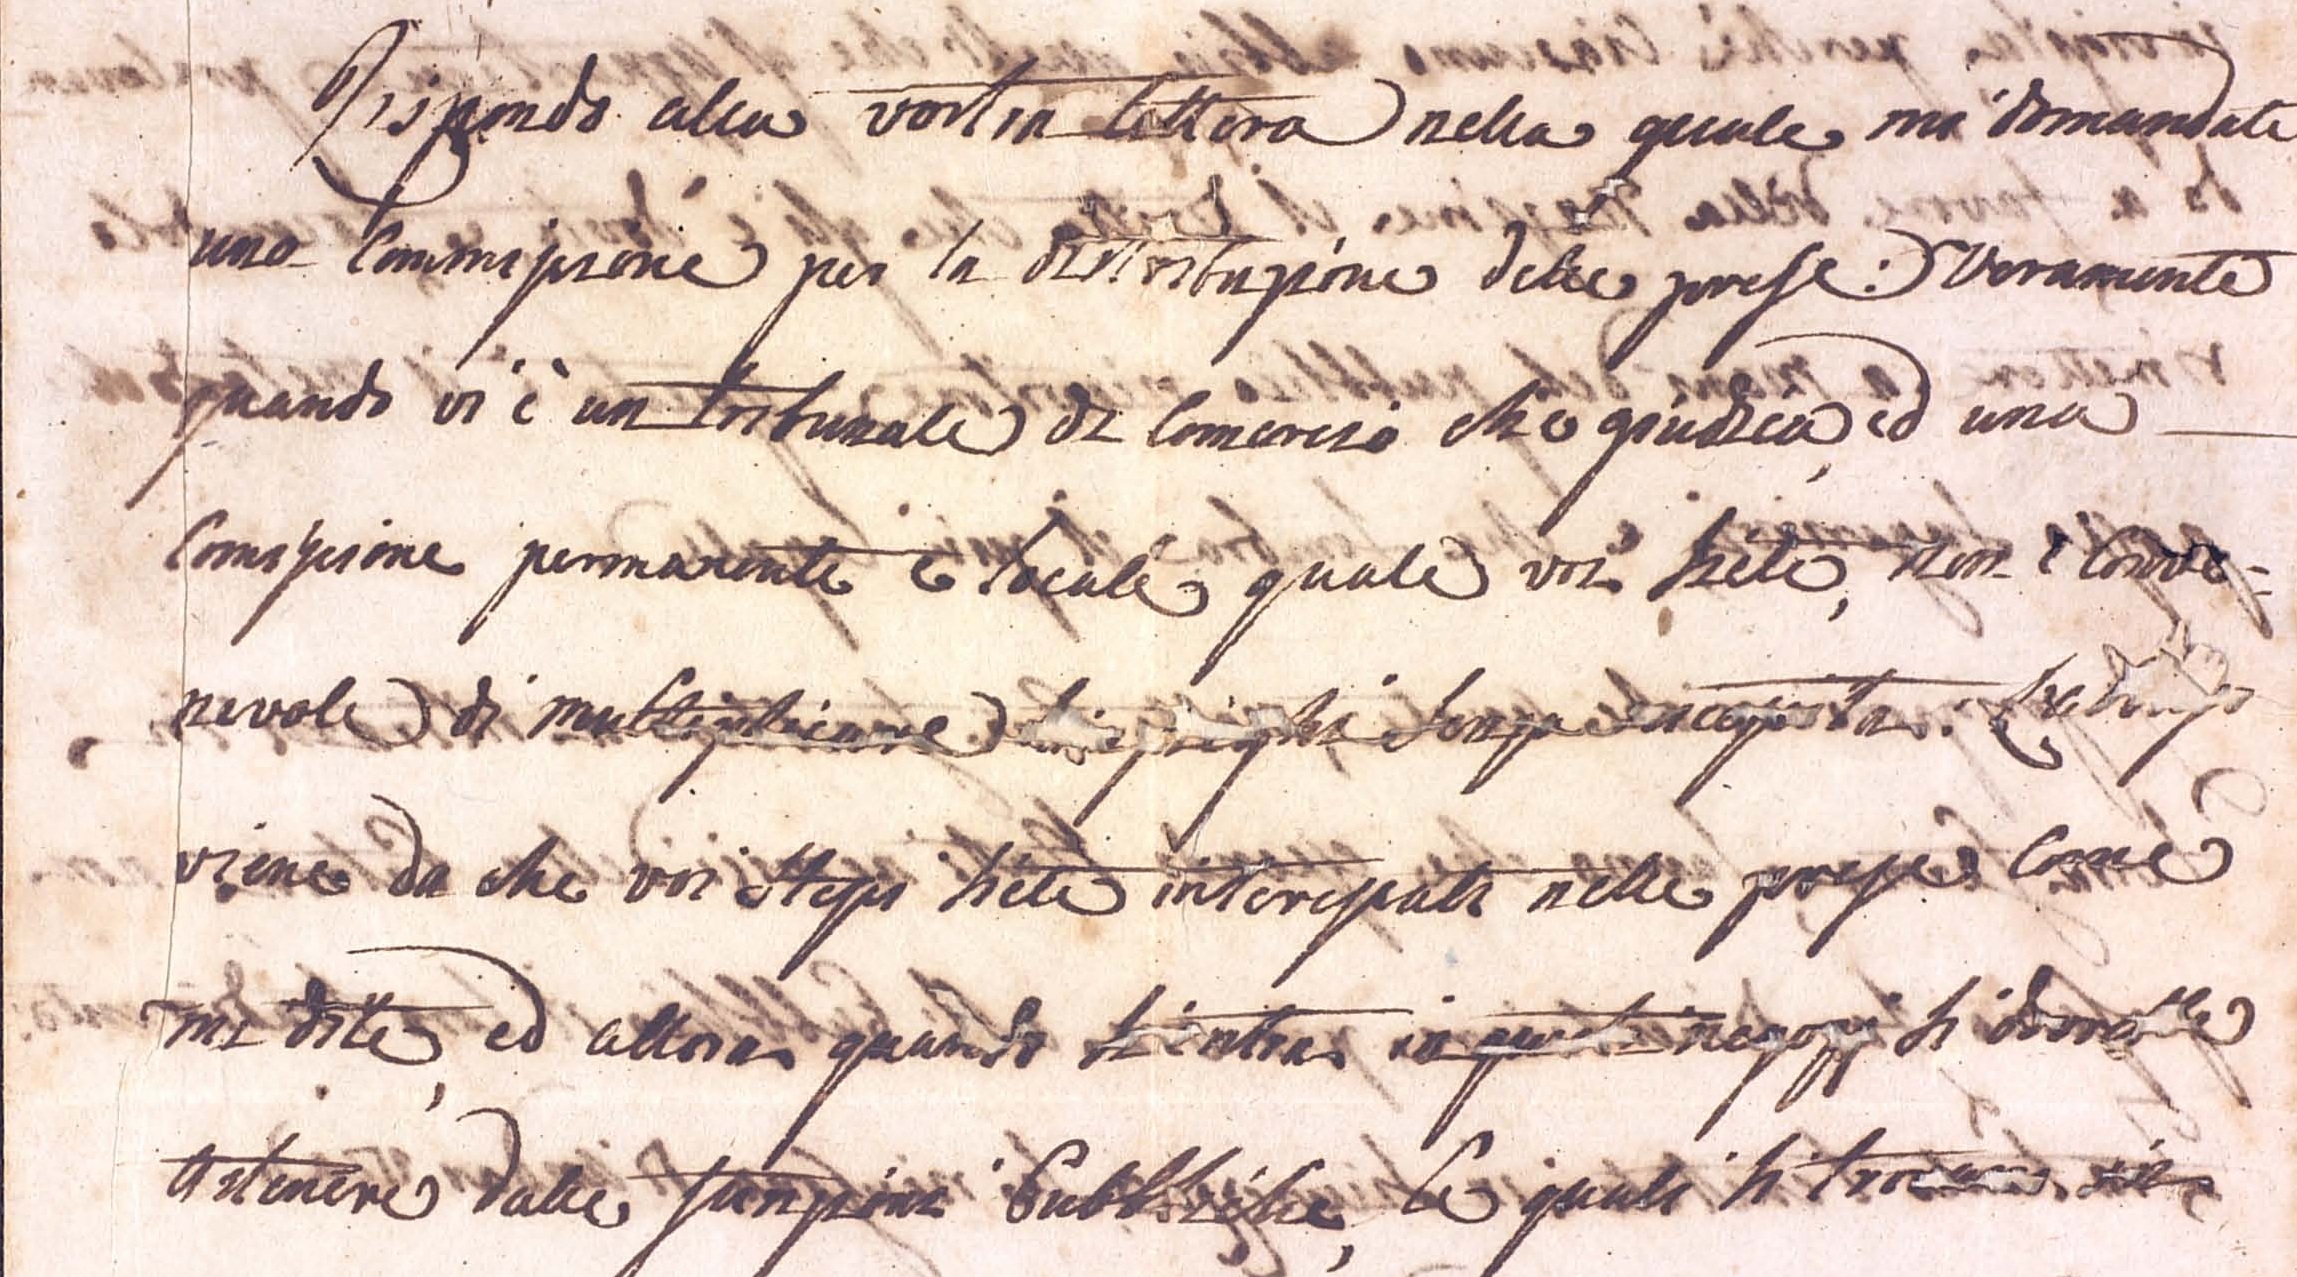 Rispondo alla vostra lettera nella quale mi domandate
una Commissione per la distribuzione delle prese: Veramente
quando vi è un tribunale di Comercio che giudica, ed una
Comissione permanente e locale quale voi siete, non è conve=
nevole di multiplicare senza necessità:
viene da che voi stessi siete interessati nelle prese come
mi dite, ed allora quando si entra in questi negozj si dovrebbe
astenere dalle funzioni Pubbliche, le quali si trovano